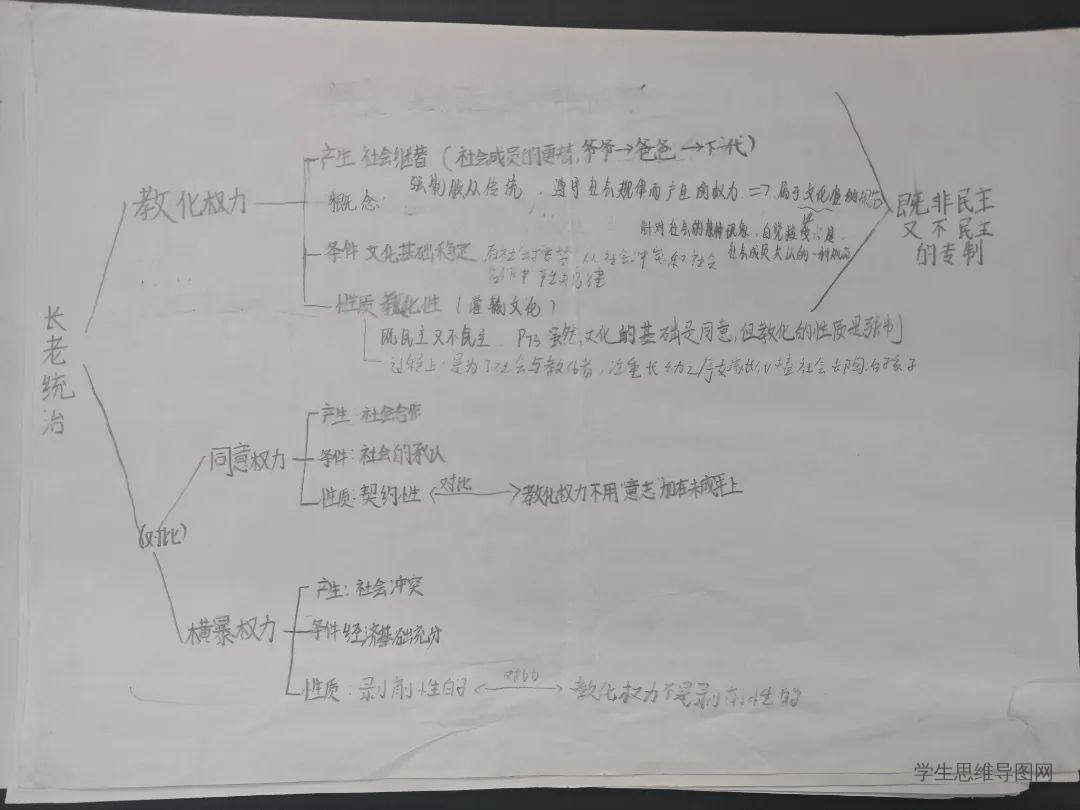 长老统治
教化权力
产生 社会继替（社会成员的更替，爷爷→爸爸→下一代）
概念： 强制服从传统，遵守社会规律而产生的权力 => 属于文化
条件 文化基础稳定
针对社会的 社会成员
性质 教化性（灌输文化）
既民主又不民主 P73 虽然，文化的基础是同意，但教化的性质是强制
过程上：是为了社会与教化者，注重长幼之序 社会去陶冶孩子
既非民主
又不民主
的专制
(对比)
同意权力
产生：社会合作
条件：社会的承认
性质：契约性 <—对比—> 教化权力不用"意志"加在未成年上
横暴权力
产生：社会冲突
条件 经济基础充分
性质：剥削性的 <—对比—> 教化权力不是剥削性的
学生思维导图网